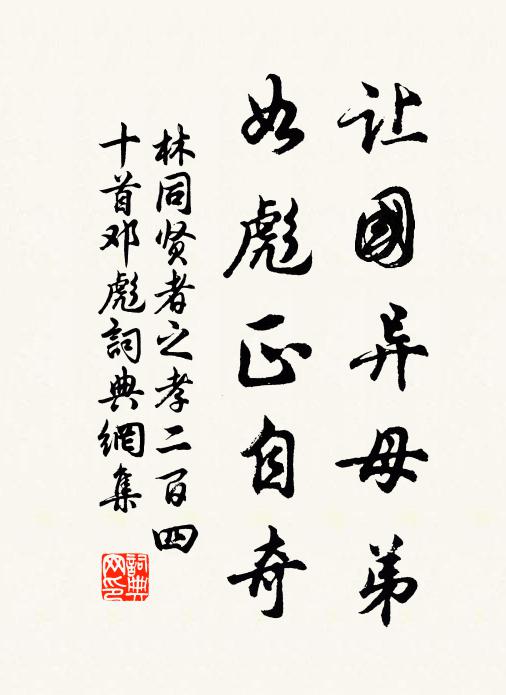 让國异母弟
如彪正自奇
林同贤者之孝二百四
十首邓彪詞典網集
詞典
网印